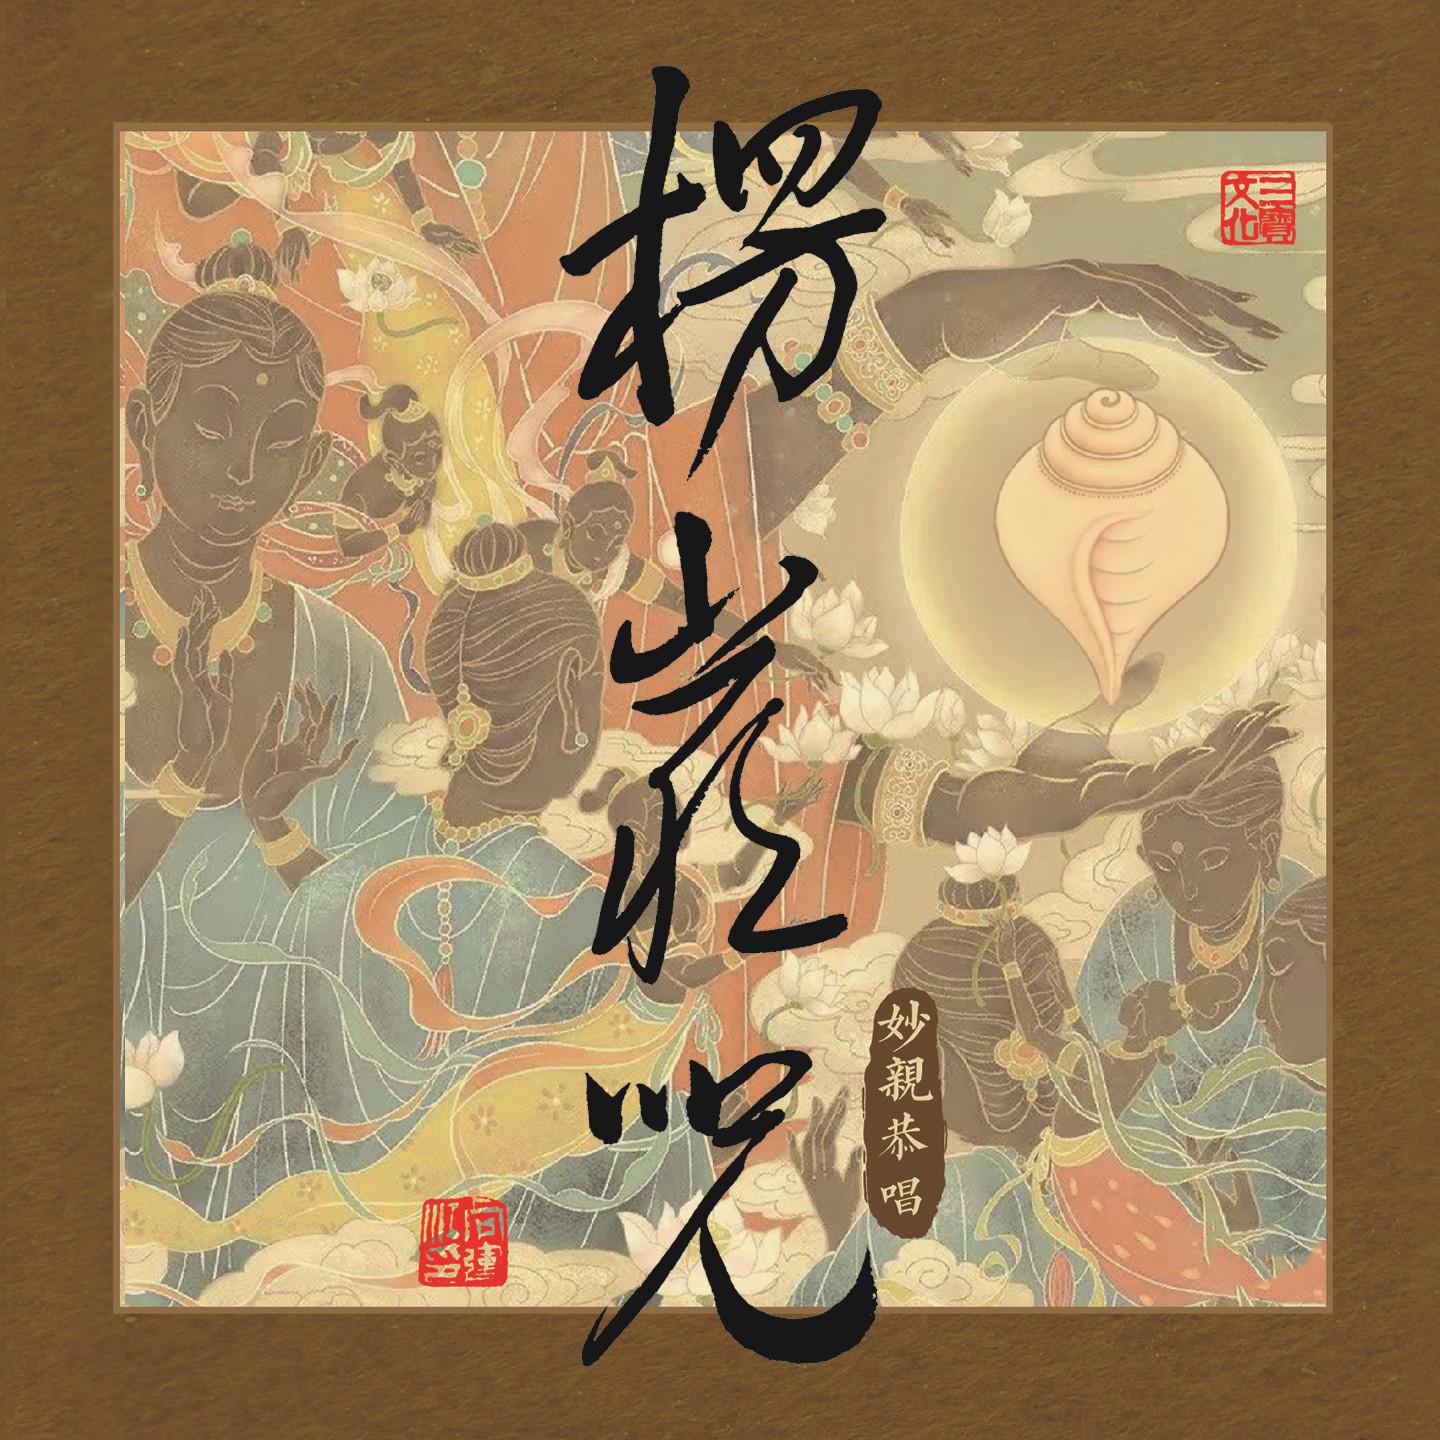 楞嚴咒
三寶文化
妙親恭唱